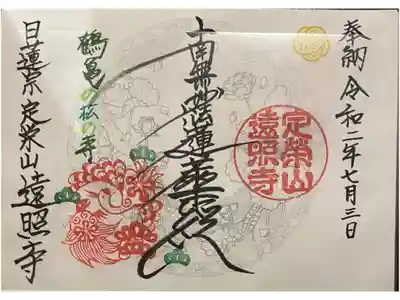 奉納 令和二年七月三日
南無妙法蓮華経
定榮山
遠照寺
鶴亀の松の寺
日蓮宗 定榮山 遠照寺